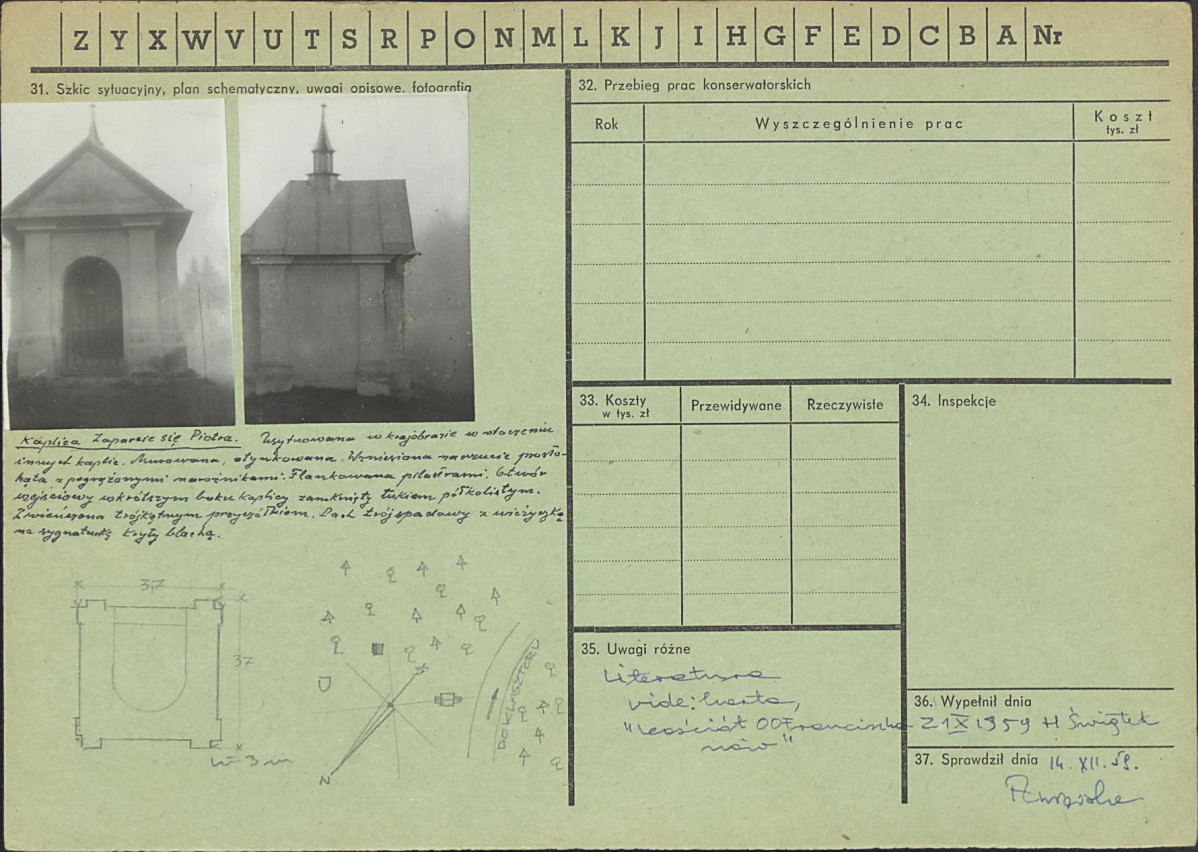 Z Y X W V U T S R P O N M L K J I H G F E D C B A Nr
31. Szkic sytuacyjny, plan schematyczny, uwagi opisowe, fotografia
Kaplica Zaparcie się Piotra. Usytuowana w krajobrazie w otoczeniu
innych kaplic. Murowana, otynkowana. Wzniesiona na rzucie prosto-
kąta z pogrążonymi narożnikami. Flankowana pilastrami. Otwór
wejściowy w krótszym boku kaplicy zamknięty łukiem półkolistym.
Zwieńczona trójkątnym przyczółkiem. Dach trójspadowy z wieżyczką
na sygnaturkę kryty blachą.
3,7
37
w = 3 m
N
DO KLASZTORU
32. Przebieg prac konserwatorskich
Rok
Wyszczególnienie prac
Koszt
tys. zł
33. Koszty
w tys. zł
Przewidywane
Rzeczywiste
34. Inspekcje
35. Uwagi różne
Literatura
vide: karta,
"Kościół OO Franciszka
nów"
36. Wypełnił dnia
21 X 1959 H Świątek
37. Sprawdził dnia 14. XII. 59.